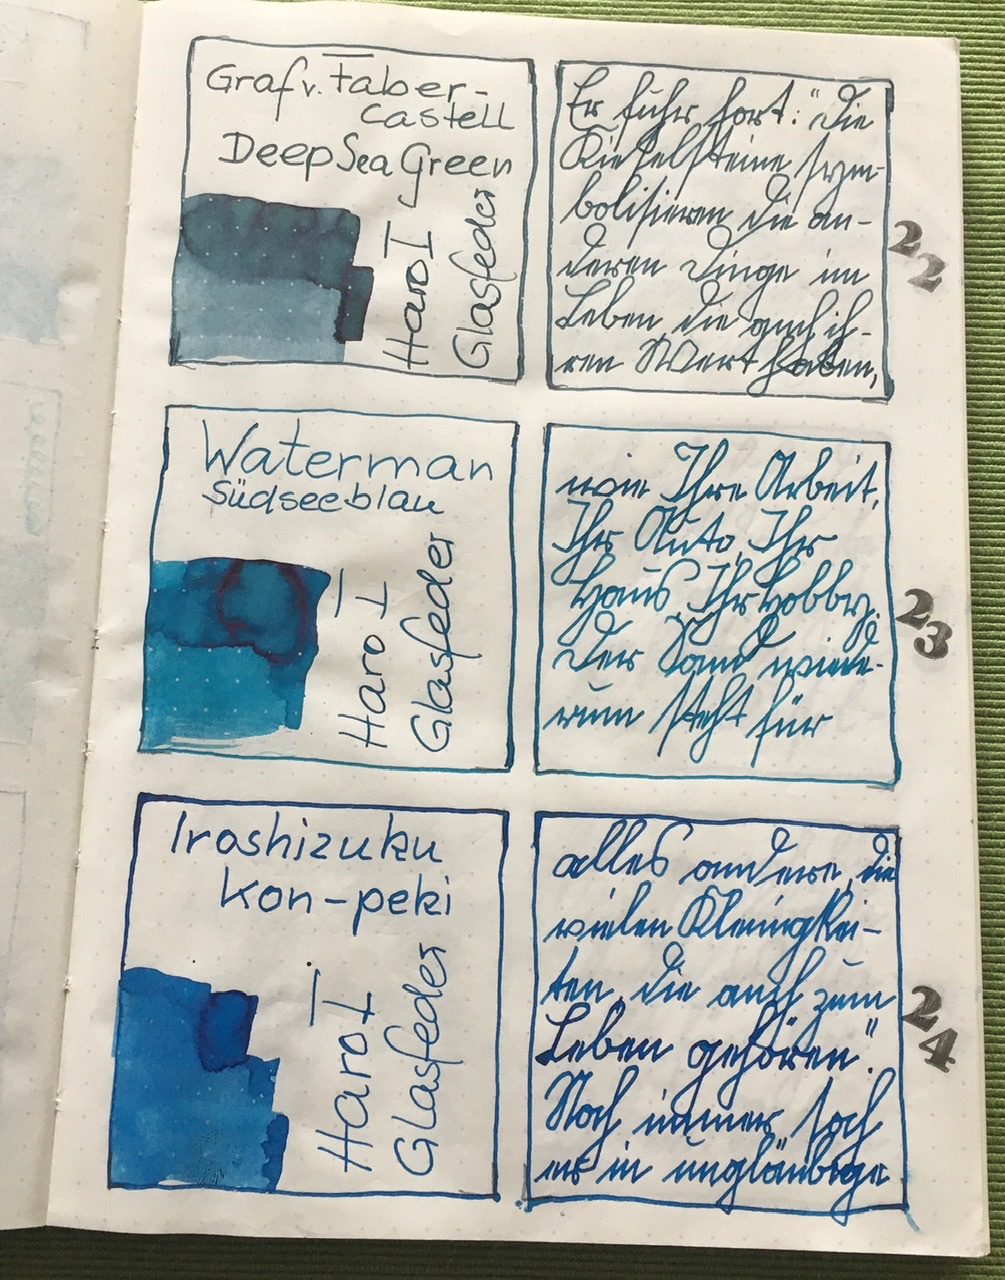 Graf v. Faber-
Castell
Deep Sea Green
Haro I
Glasfeder
Er fuhr fort: "Die
Kieselsteine sym-
bolisieren die an-
deren Dinge im
Leben, die auch ih-
ren Wert haben,
22
Waterman
Südseeblau
Haro I
Glasfeder
wie Ihre Arbeit,
Ihr Auto, Ihr
Haus, Ihr Hobby.
Der Sand wiede-
rum steht für
23
Iroshizuku
kon-peki
Haro I
Glasfeder
alles andere, die
vielen Kleinigkei-
ten, die auch zum
Leben gehören".
Noch immer sah
er in ungläubige
24